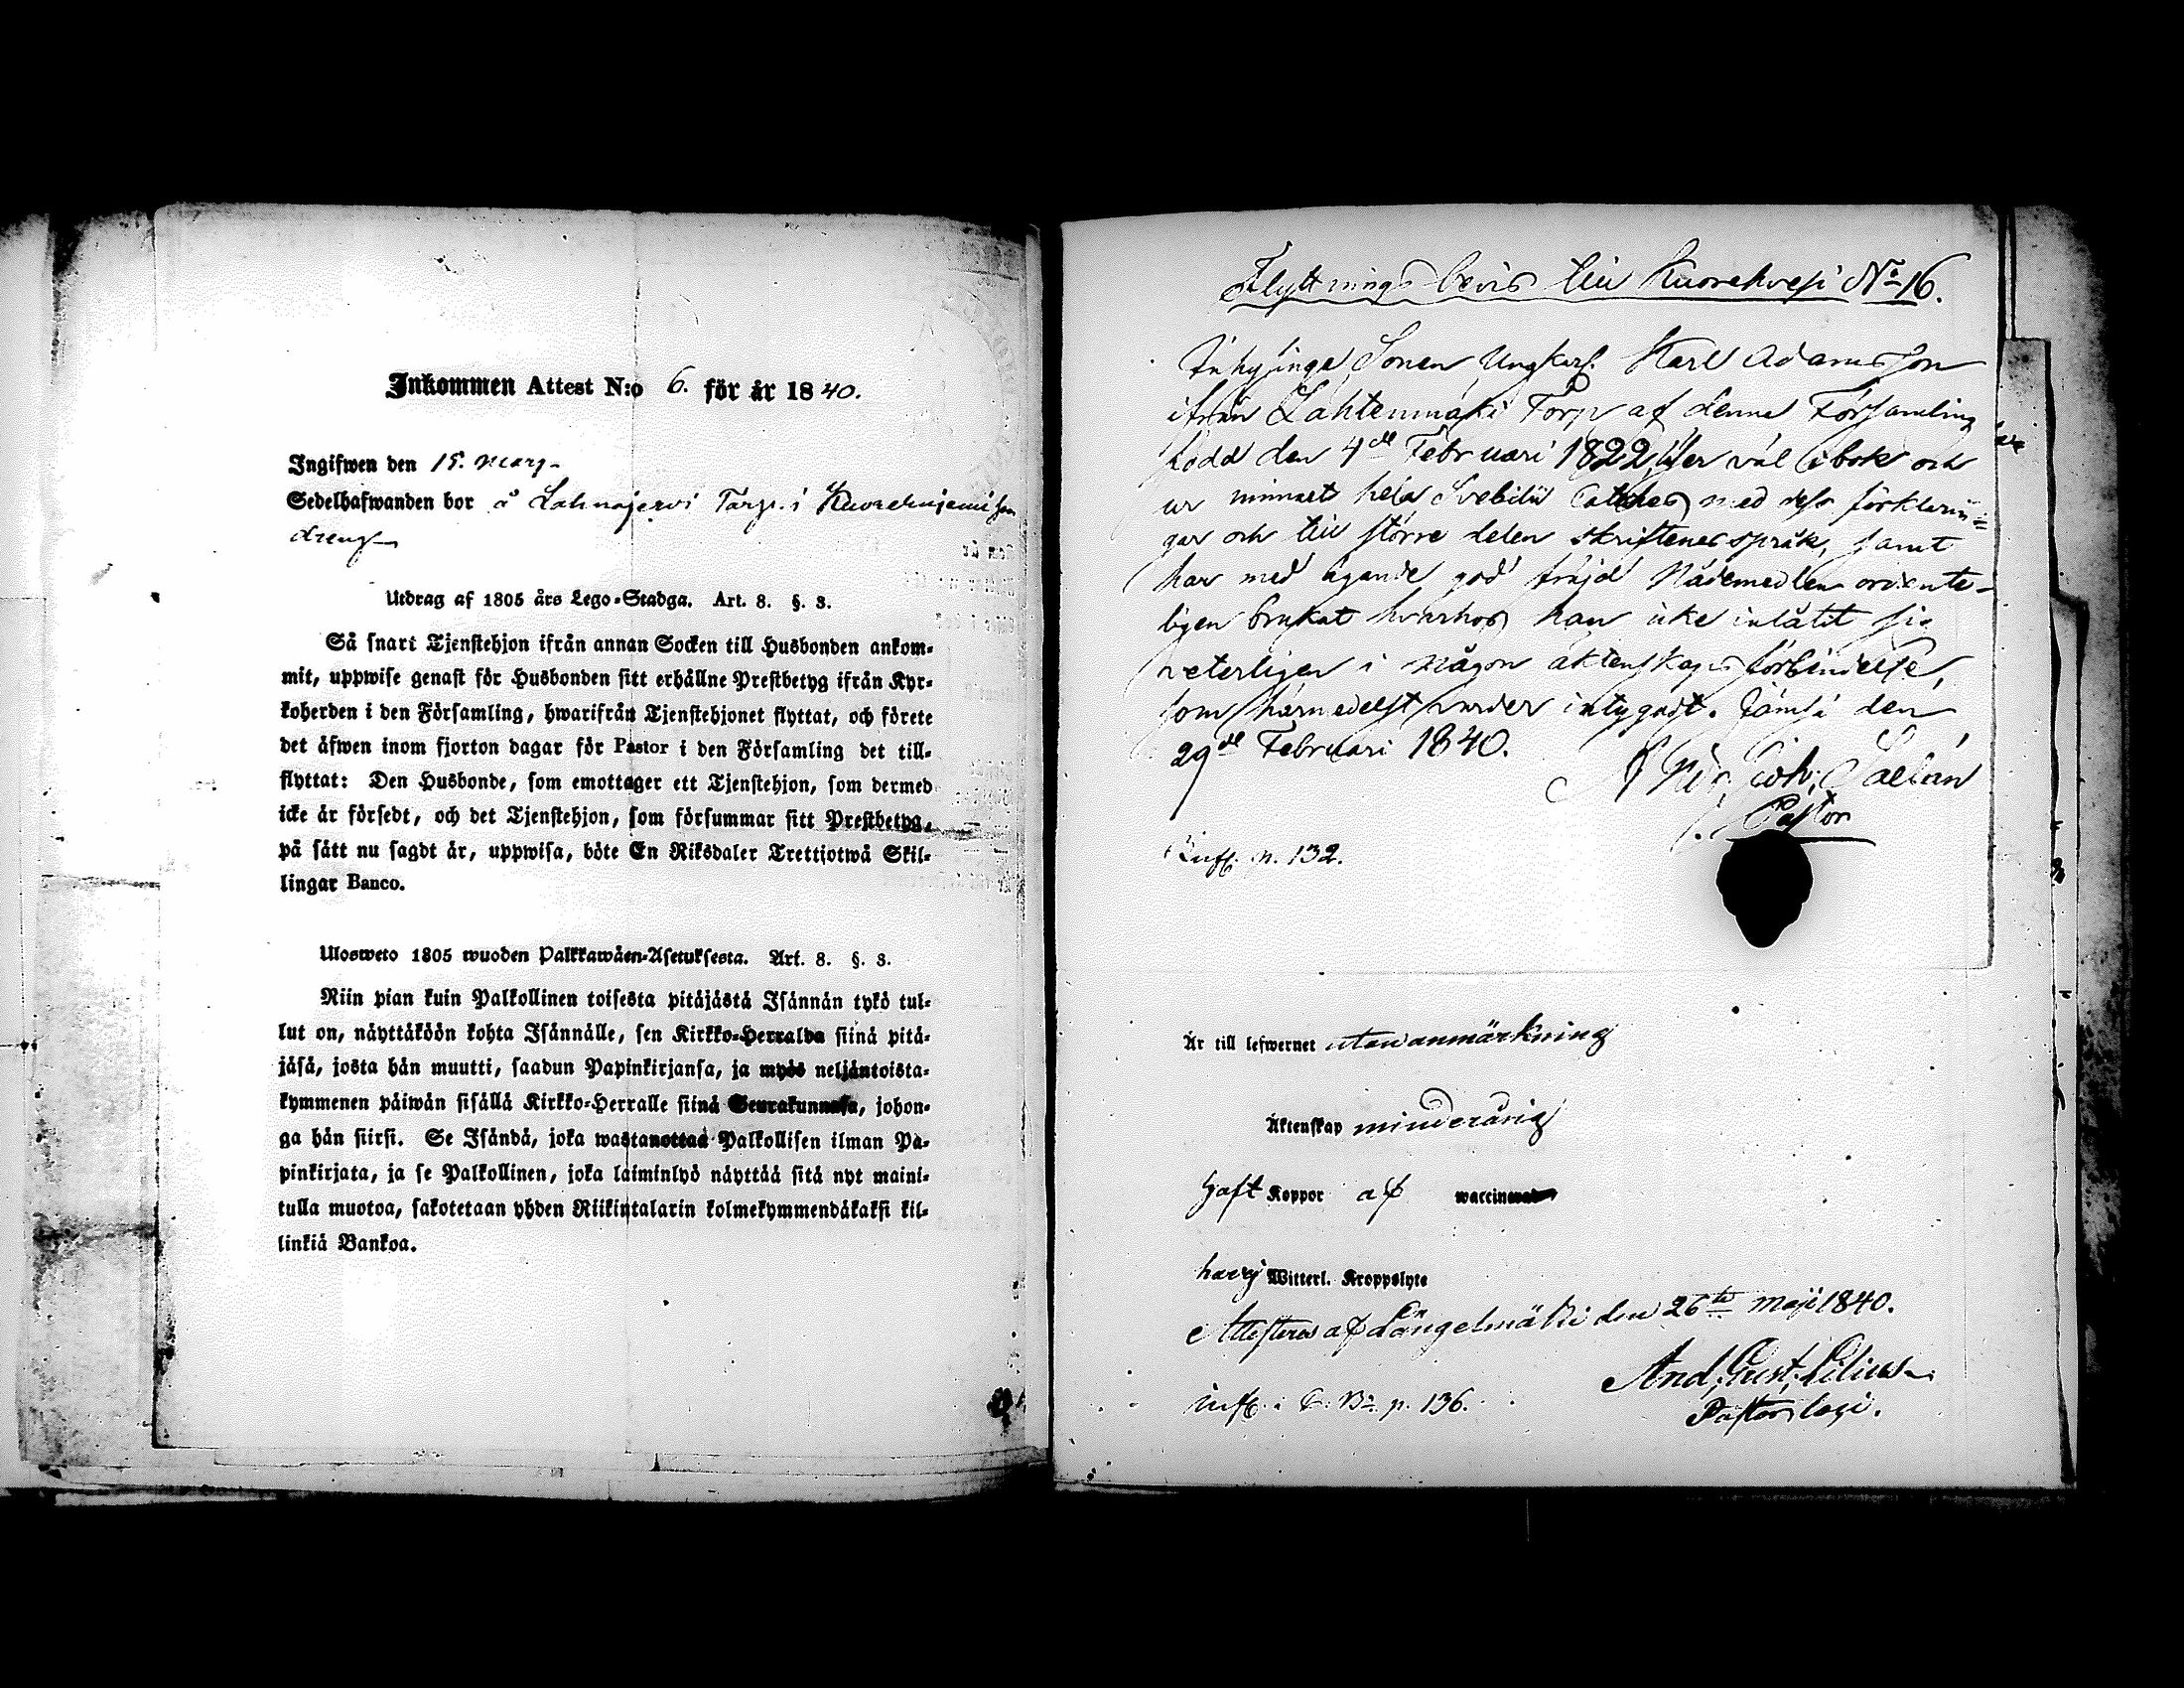 Inkommen Attest N:o 6. för år 1840.
Ingifwen den 15. Mars
Sedelhafwanden bor å Lahnajerwi Torp i Kuorehnjemi som
dreng
Utdrag af 1805 års Lego-Stadga. Art. 8. §. 3.
Så snart Tjenstehjon ifrån annan Socken till Husbonden ankom-
mit, uppwise genast för Husbonden sitt erhållne Prestbetyg ifrån Kyr-
koherden i den Församling, hwarifrån Tjenstehjonet flyttat, och förete
det äfwen inom fjorton dagar för Pastor i den Församling det till-
flyttat: Den Husbonde, som emottager ett Tjenstehjon, som dermed
icke är försedt, och det Tjenstehjon, som försummar sitt Prestbetyg,
på sätt nu sagdt är, uppwisa, böte En Riksdaler Trettjotwå Skil-
lingar Banco.
Ulosweto 1805 wuoden Palkkawäen-Asetuksesta. Art. 8. §. 3.
Niin pian kuin Palkollinen toisesta pitäjästä Isännän tykö tul-
lut on, näyttäköön kohta Isännälle, sen Kirkko-Herralda siinä pitä-
jäsä, josta hän muutti, saadun Papinkirjansa, ja myös neljäntoista-
kymmenen päiwän sisällä Kirkko-Herralle siinä Seurakunnasa, johon-
ga hän siirsi. Se Isändä, joka wastanottaa Palkollisen ilman Pa-
pinkirjata, ja se Palkollinen, joka laiminlyö näyttää sitä nyt maini-
tulla muotoa, sakotetaan yhden Riikintalarin kolmekymmendäkaksi kil-
linkiä Bankoa.
Flyttnings bevis till Kuorehvesi No 16.
Inhysinge Sonen Ungkarl. Karl Adamsson
ifrån Lahtenmäki Torp af denna Församling
född den 4de Februari 1822, läser väl i bok och
ur minnet hela Svebilii Cateches med dess förklarin=
gar och till större delen skriftenes språk, samt
har med ägande god fräjd Nådemedlen ordente-
ligen brukat hvarhos han icke inlåtit sig
veterligen i någon äktenskaps förbindelse,
som härmedelst varder intygadt. Jämsä den
29de Februari 1840.
Joh:
Pastor
Infl. p. 132.
Är till lefwernet utan anmärkning
Äktenskap minderårig
haft Koppor af waccinerad
har ej Witterl. Kroppslyte
Attesteras af Längelmäki den 26te Maji 1840.
And. Gust. Lilius
Pastors loci.
infl. i C. B. p. 136.